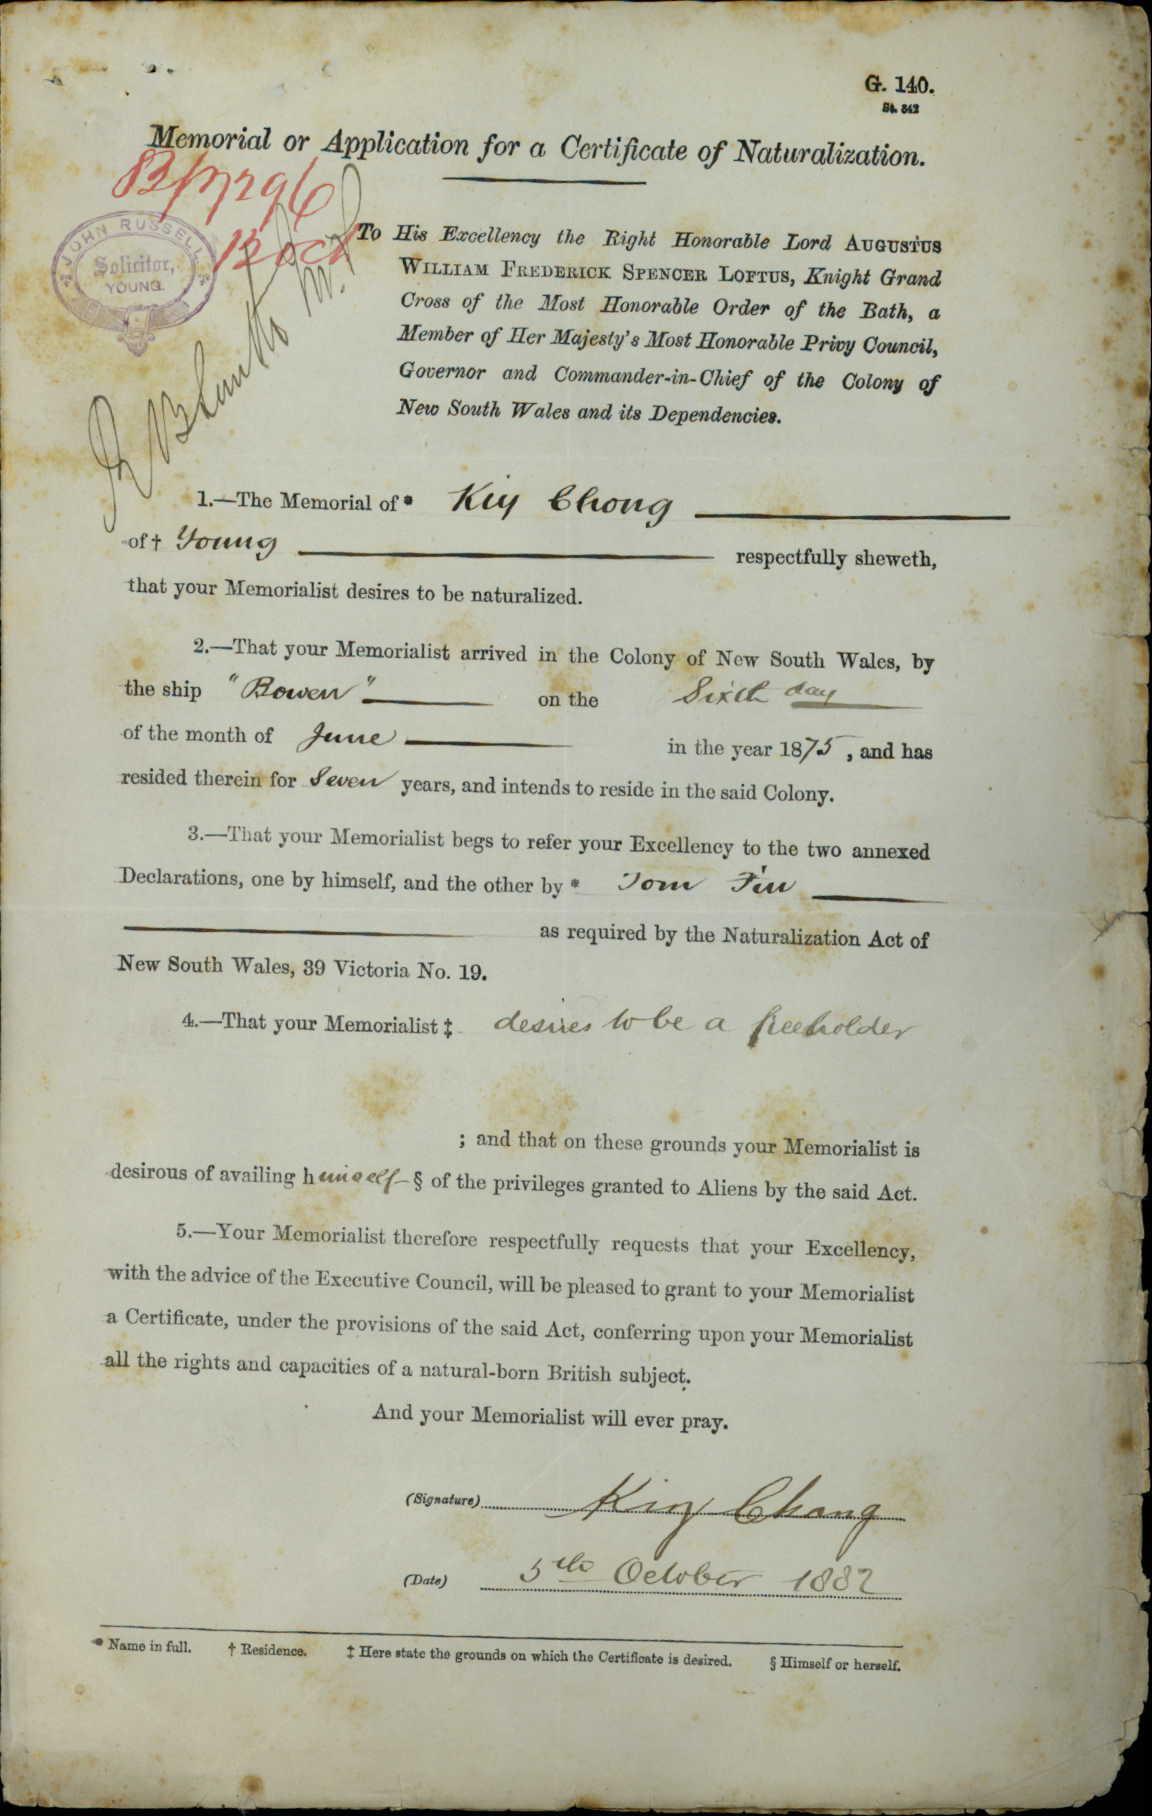 G. 140.
St. 342
Memorial or Application for a Certificate of Naturalization.
12 Oct
JOHN RUSSELL
Solicitor,
YOUNG.
To His Excellency the Right Honorable Lord AUGUSTUS
WILLIAM FREDERICK SPENCER LOFTUS, Knight Grand
Cross of the Most Honorable Order of the Bath, a
Member of Her Majesty's Most Honorable Privy Council,
Governor and Commander-in-Chief of the Colony of
New South Wales and its Dependencies.
1.—The Memorial of * Kiy Chong
of † Young respectfully sheweth,
that your Memorialist desires to be naturalized.
2.—That your Memorialist arrived in the Colony of New South Wales, by
the ship "Bowen" on the Sixth day
of the month of June in the year 1875, and has
resided therein for Seven years, and intends to reside in the said Colony.
3.—That your Memorialist begs to refer your Excellency to the two annexed
Declarations, one by himself, and the other by * Tom Fin
as required by the Naturalization Act of
New South Wales, 39 Victoria No. 19.
4.—That your Memorialist ‡ desires to be a freeholder
; and that on these grounds your Memorialist is
desirous of availing himself § of the privileges granted to Aliens by the said Act.
5.—Your Memorialist therefore respectfully requests that your Excellency,
with the advice of the Executive Council, will be pleased to grant to your Memorialist
a Certificate, under the provisions of the said Act, conferring upon your Memorialist
all the rights and capacities of a natural-born British subject.
And your Memorialist will ever pray.
(Signature) Kiy Chong
(Date) 5th October 1882
* Name in full. † Residence. ‡ Here state the grounds on which the Certificate is desired. § Himself or herself.